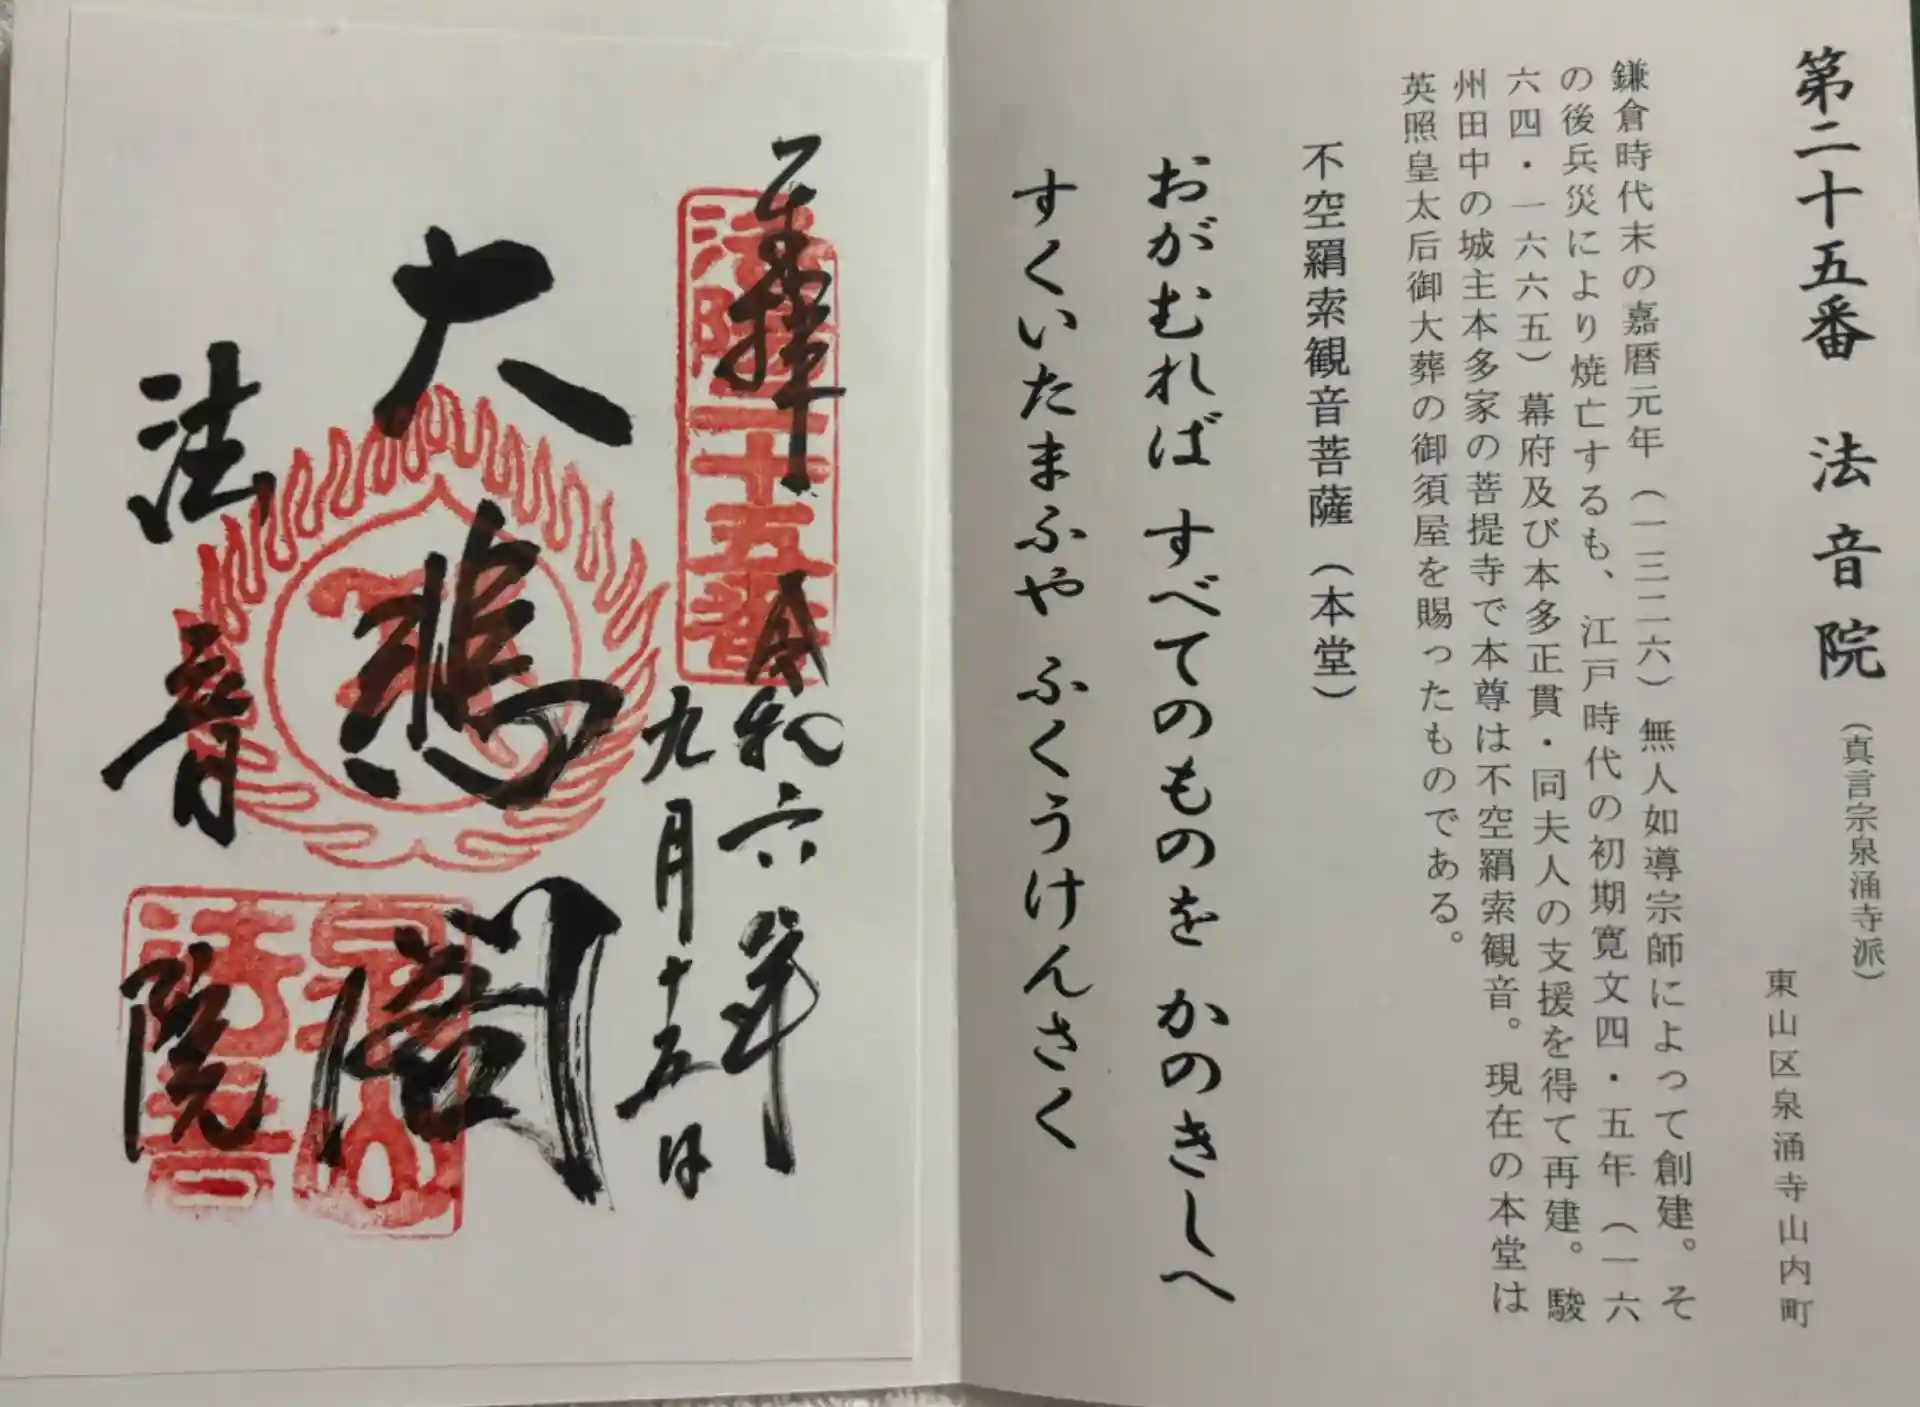 第二十五番 法音院(真言宗泉涌寺派)
東山区泉涌寺山内町
鎌倉時代末の嘉暦元年(一三二六)無人如導宗師によって創建。そ
の後兵災により焼亡するも、江戸時代の初期寛文四・五年(一六
六四・一六六五)幕府及び本多正貫・同夫人の支援を得て再建。駿
州田中の城主本多家の菩提寺で本尊は不空羂索観音。現在の本堂は
英照皇太后御大葬の御須屋を賜ったものである。
不空羂索観音菩薩(本堂)
おがむれば すべてのものを かのきしへ
すくいたまふや ふくうけんさく
奉拝 令和六年
九月十五日
洛陽二十五番
大悲閣
法音院
泉山
法音